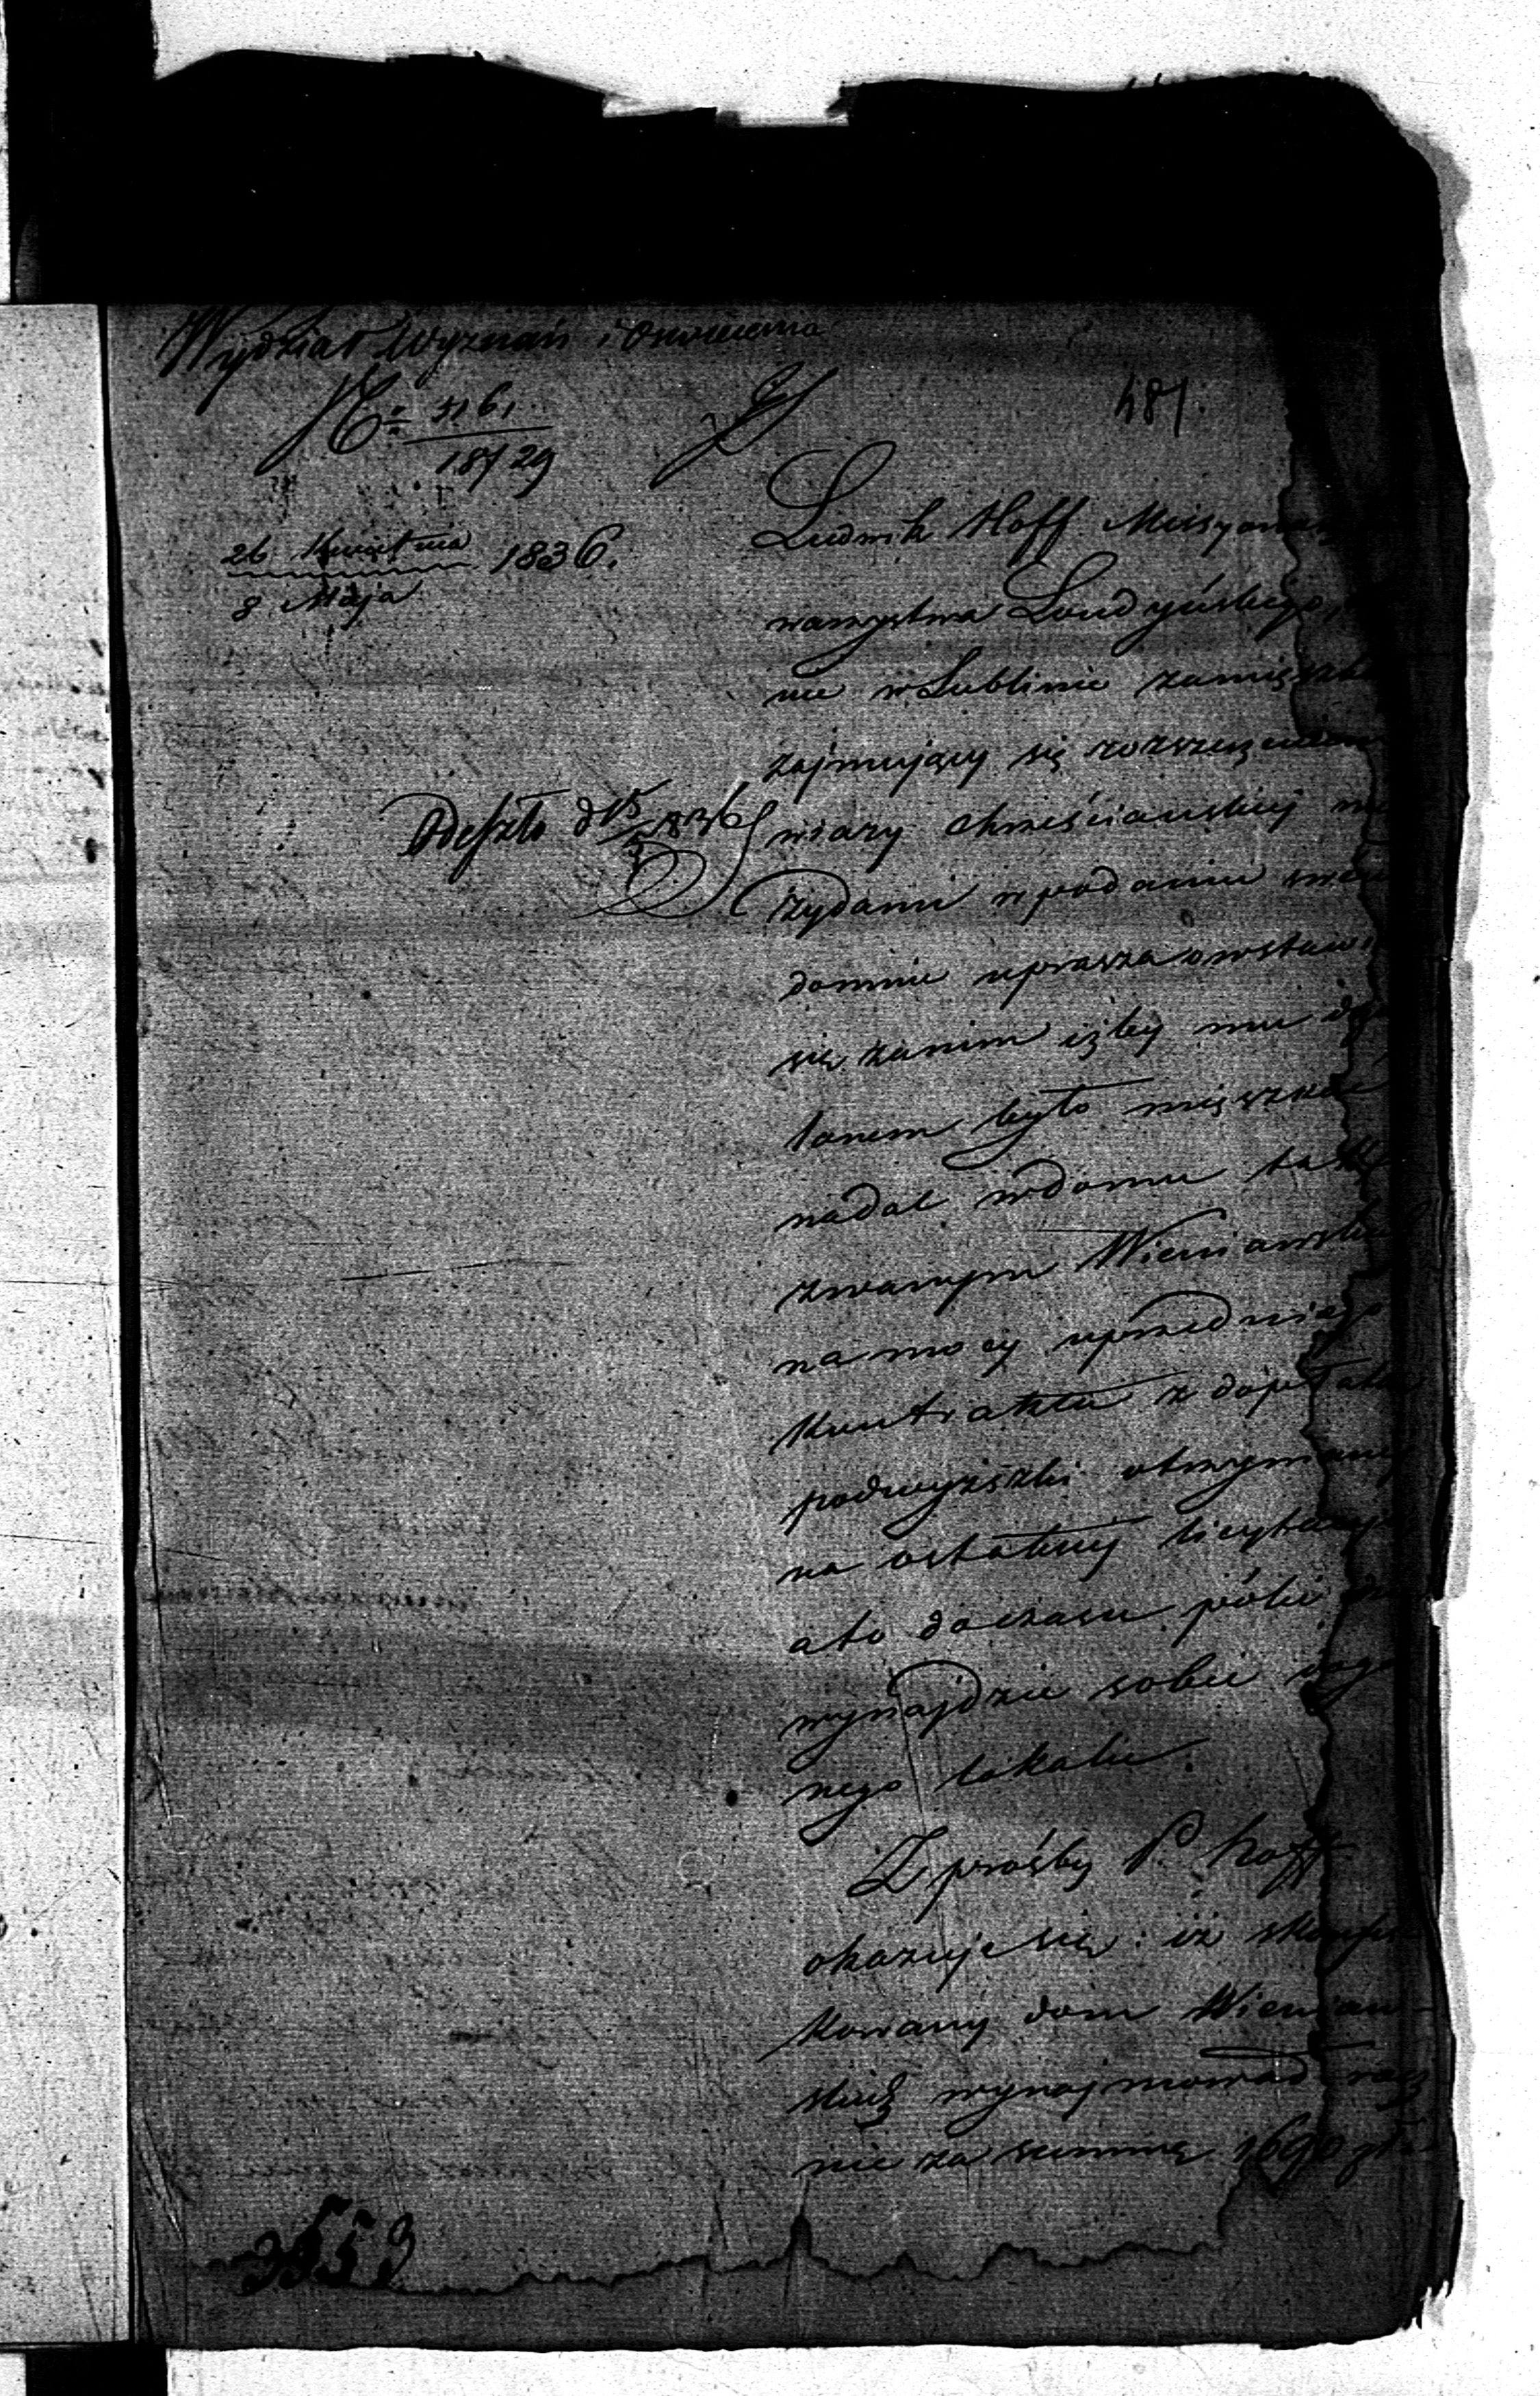 Wydział Wyznań i Oświecenia
No 5161
18729
487.
26 Kwietnia
8 Maja 1836.
Ludwik Hoff Missyonarz
warzystwa Londyńskiego,
nie w Lublinie zamieszka
zajmujący się rozszerzeniem
Odeszło d 15/5 836
wiary chrześciańskiej mię
żydami w podaniu swem
domnie uprasza o wstawi
się zanim iżby mu do
lonem było mieszkać
nadal w domu tak
zwanym Wieniawski
na mocy uprzedniego
Kontraktu z dopłatą
podwyższki otrzymaney
na ostatniej licytacyi
a to do czasu póki nie
wynajdzie sobie
nego lokalu.
Z prośby P. Hoff
okazuje się: iż skonfis
kowany dom Wieniaw-
skich wynajmował rocz
nie za summę 1690 złp
3553